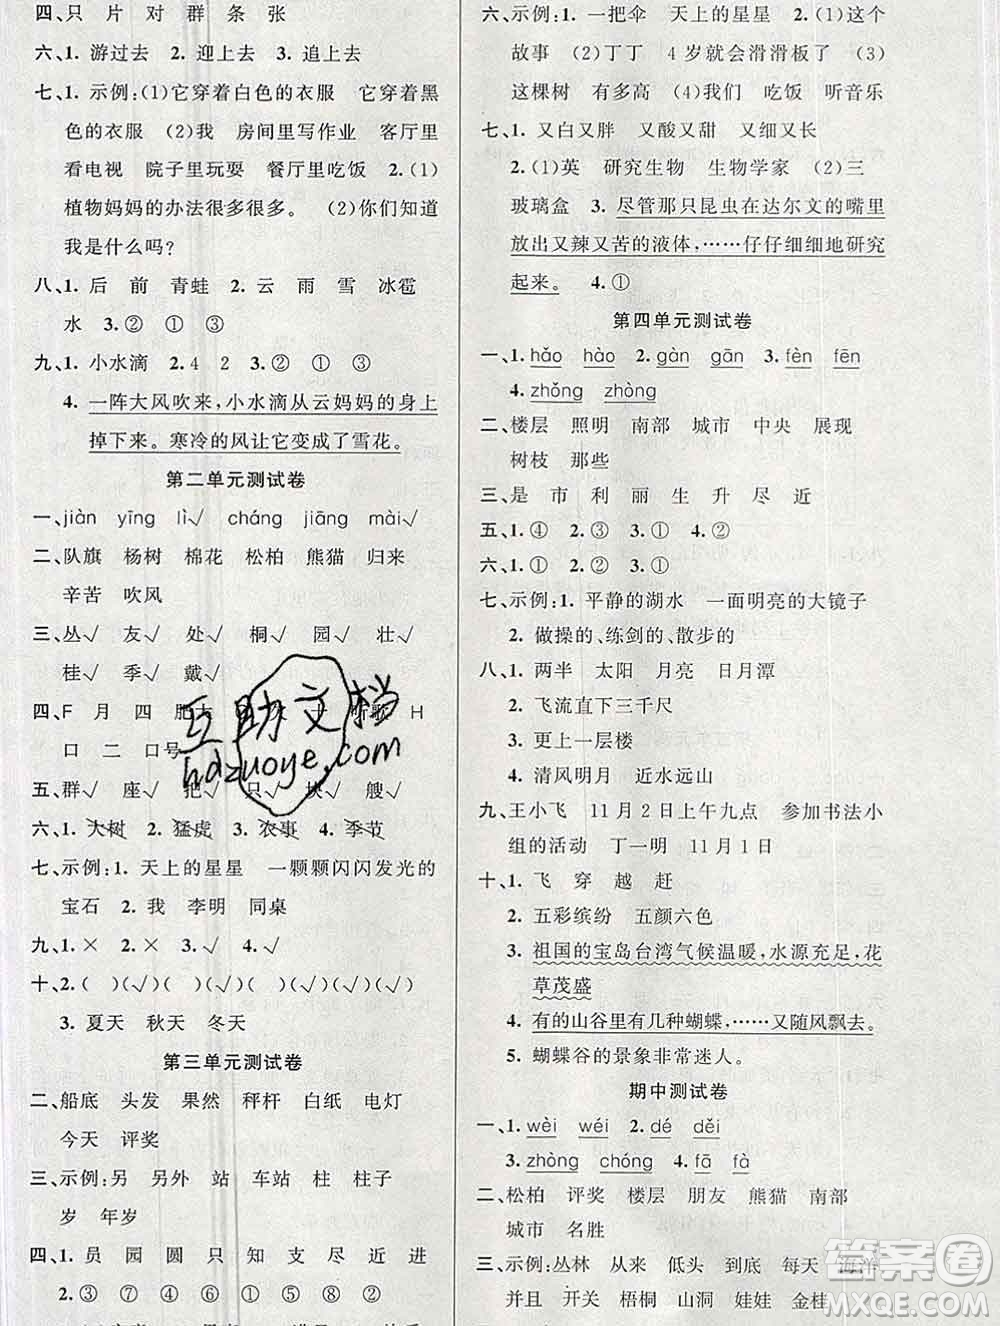 四、只 片 对 群 条 张
六、1. 游过去 2. 迎上去 3. 追上去
七、1. 示例:(1)它穿着白色的衣服 它穿着黑
色的衣服 (2)我 房间里写作业 客厅里
看电视 院子里玩耍 餐厅里吃饭 2.(1)
植物妈妈的办法很多很多。 (2)你们知道
我是什么吗?
八、1. 后 前 青蛙 2. 云 雨 雪 冰雹
水 3.② ① ③
九、1. 小水滴 2.4 2 3.② ① ③
4. 一阵大风吹来,小水滴从云妈妈的身上
掉下来。寒冷的风让它变成了雪花。
第二单元测试卷
一、jiàn yīng lì√ cháng jiāng mài√
二、队旗 杨树 棉花 松柏 熊猫 归来
辛苦 吹风
三、丛√ 友√ 处√ 桐√ 园√ 壮√
桂√ 季√ 戴√
四、F 月 四 肥大 十 听歌 H
口 二 口号
五、群√ 座√ 把√ 只√ 块√ 艘√
六、1. 大树 2. 猛虎 3. 农事 4. 季节
七、示例:1. 天上的星星 一颗颗闪闪发光的
宝石 2. 我 李明 同桌
九、1.× 2.× 3.√ 4.√
十、2.( )(√)(√)( )(√)(√)(√)
3. 夏天 秋天 冬天
第三单元测试卷
二、船底 头发 果然 秤杆 白纸 电灯
今天 评奖
三、示例:另 另外 站 车站 柱 柱子
岁 年岁
四、1. 员 园 圆 只 知 支 尽 近 进
2.③ ⑦ ④ ① ⑥ ⑤ ⑧ ②
六、示例:1. 一把伞 天上的星星 2.(1)这个
故事 (2)丁丁 4 岁就会滑滑板了 (3)
这棵树 有多高 (4)我们 吃饭 听音乐
七、1. 又白又胖 又酸又甜 又细又长
2.(1)英 研究生物 生物学家 (2)三
玻璃盒 3. 尽管那只昆虫在达尔文的嘴里
放出又辣又苦的液体,……仔仔细细地研究
起来。 4.①
第四单元测试卷
一、1. hǎo hào 2. gàn gān 3. fèn fēn
4. zhǒng zhòng
二、楼层 照明 南部 城市 中央 展现
树枝 那些
三、是 市 利 丽 生 升 尽 近
五、1.④ 2.③ 3.① 4.②
六、1.① 2.② 3.①
七、示例:1. 平静的湖水 一面明亮的大镜子
2. 做操的、练剑的、散步的
八、1. 两半 太阳 月亮 日月潭
2. 飞流直下三千尺
3. 更上一层楼
4. 清风明月 近水远山
九、王小飞 11 月 2 日上午九点 参加书法小
组的活动 丁一明 11 月 1 日
十、1. 飞 穿 越 赶
2. 五彩缤纷 五颜六色
3. 祖国的宝岛台湾气候温暖,水源充足,花
草茂盛
4. 有的山谷里有几种蝴蝶,……又随风飘去。
5. 蝴蝶谷的景象非常迷人。
期中测试卷
一、1. wèi wéi 2. dé děi
3. zhòng chóng 4. fā fà
二、松柏 评奖 楼层 朋友 熊猫 南部
城市 名胜
三、示例:丛林 从来 低头 到底 每天 海洋
并且 开关 梧桐 山洞 娃娃 金桂
互助文档
hdzuoye.com
答案圈
MXQE.COM